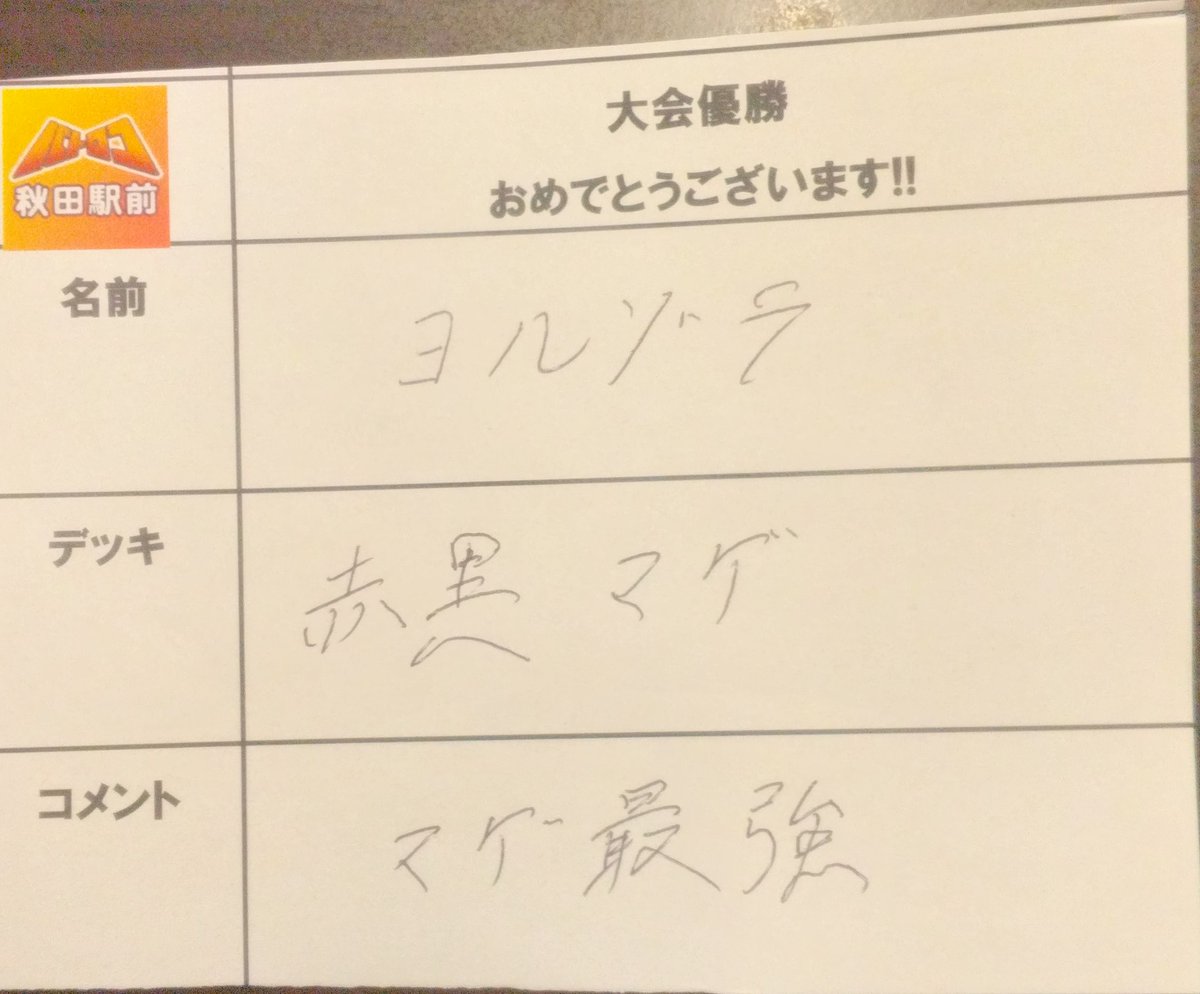 バトロコ
秋田駅前
大会優勝
おめでとうございます!!
名前
ヨルゾラ
デッキ
赤黒 マゲ
コメント
マゲ最強